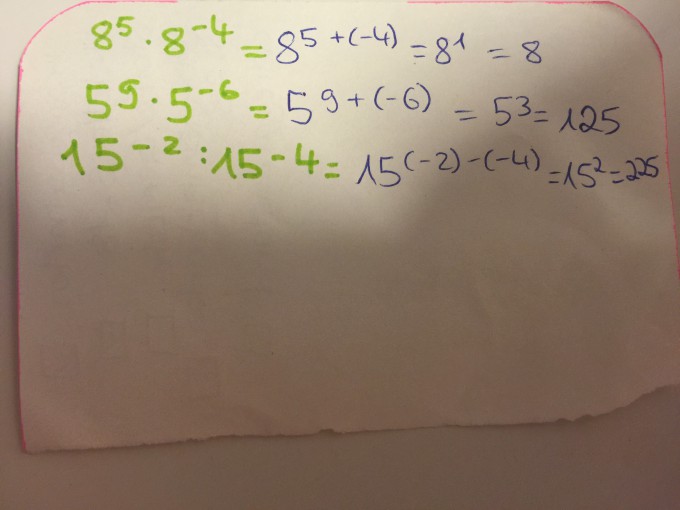 8⁵ · 8⁻⁴ = 8⁵ ⁺ ⁽⁻⁴⁾ = 8¹ = 8
5⁹ · 5⁻⁶ = 5⁹ ⁺ ⁽⁻⁶⁾ = 5³ = 125
15⁻² : 15⁻⁴ = 15⁽⁻²⁾ ⁻ ⁽⁻⁴⁾ = 15² = 225